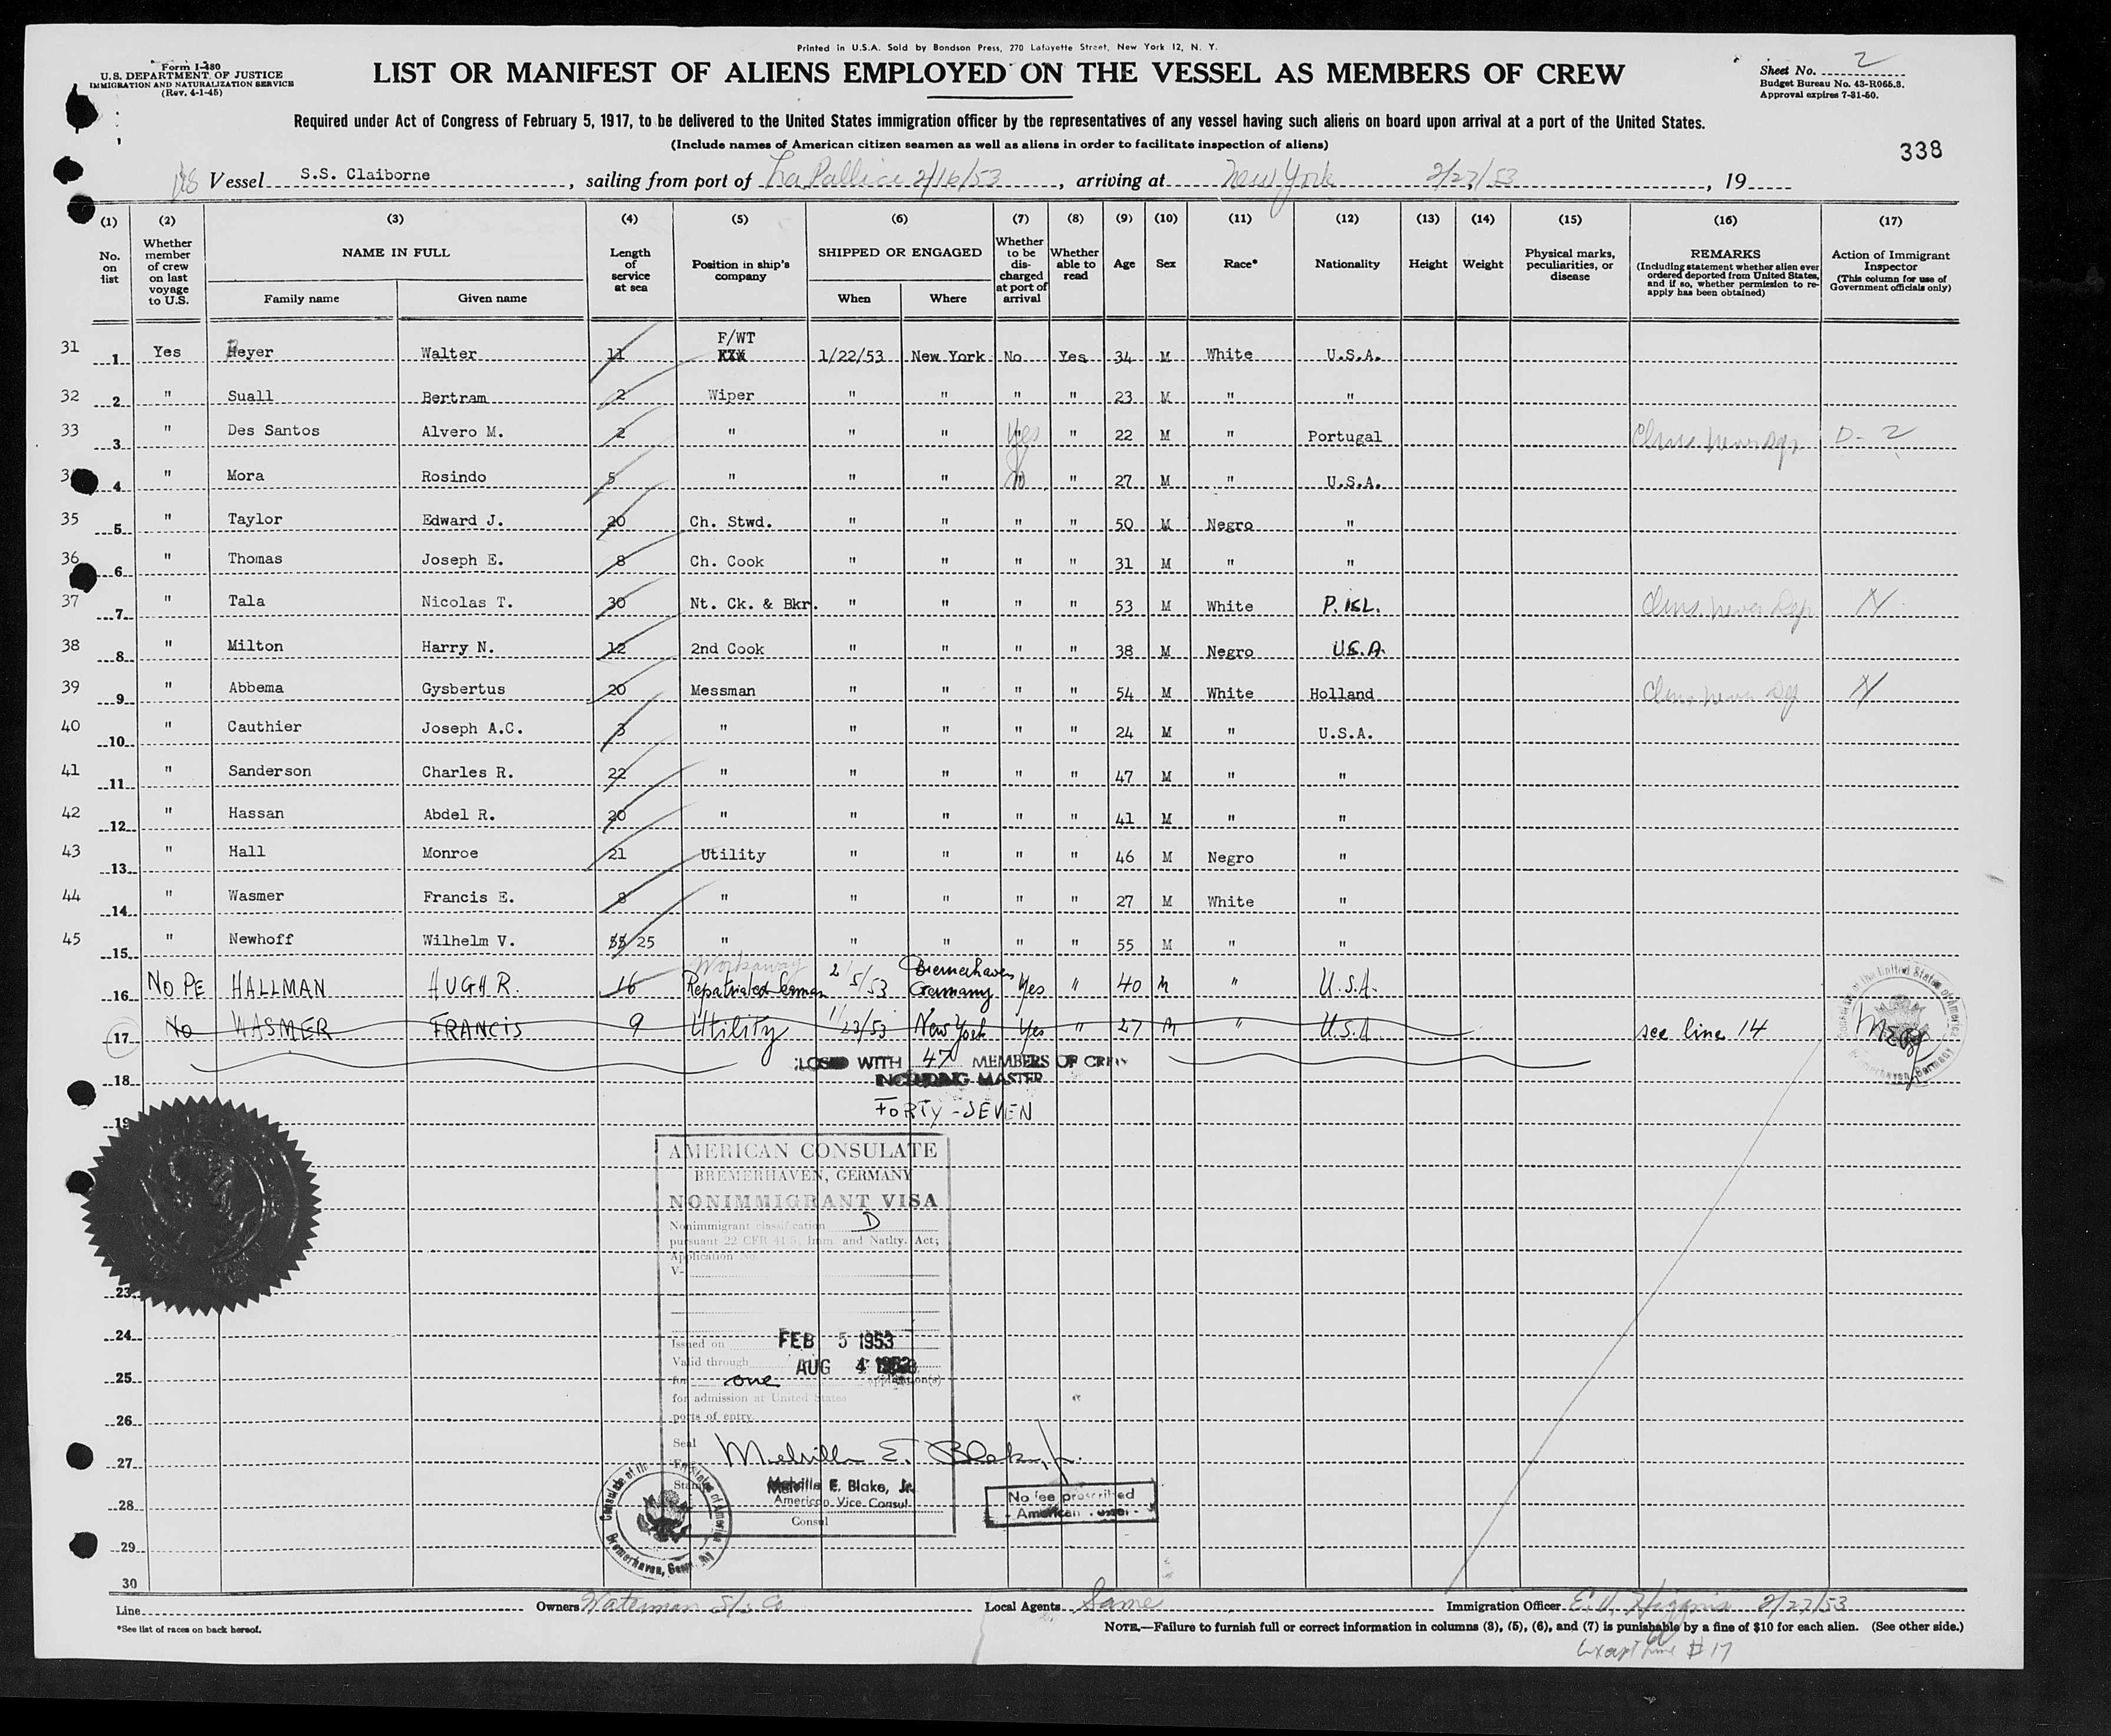 Printed in U.S.A. Sold by Bondson Press, 270 Lafayette Street, New York 12, N. Y.
Form I-480
U.S. DEPARTMENT OF JUSTICE
IMMIGRATION AND NATURALIZATION SERVICE
(Rev. 4-1-45)
LIST OR MANIFEST OF ALIENS EMPLOYED ON THE VESSEL AS MEMBERS OF CREW
Sheet No. 2
Budget Bureau No. 43-R065.3.
Approval expires 7-31-50.
Required under Act of Congress of February 5, 1917, to be delivered to the United States immigration officer by the representatives of any vessel having such aliens on board upon arrival at a port of the United States.
(Include names of American citizen seamen as well as aliens in order to facilitate inspection of aliens)
338
Vessel S.S. Claiborne, sailing from port of La Pallice 2/16/53, arriving at New York 2/27/53, 19
(1) (2) (3) (4) (5) (6) (7) (8) (9) (10) (11) (12) (13) (14) (15) (16) (17)
No. on list
Whether member of crew on last voyage to U.S.
NAME IN FULL
Family name Given name
Length of service at sea
Position in ship's company
SHIPPED OR ENGAGED
When Where
Whether to be discharged at port of arrival
Whether able to read
Age
Sex
Race*
Nationality
Height
Weight
Physical marks, peculiarities, or disease
REMARKS
(Including statement whether alien ever ordered deported from United States, and if so, whether permission to reapply has been obtained)
Action of Immigrant Inspector
(This column for use of Government officials only)
F/WT
31 1 Yes Heyer Walter 11 1/22/53 New York No Yes 34 M White U.S.A.
32 2 " Suall Bertram 2 Wiper " " " " 23 M " "
33 3 " Des Santos Alvero M. 2 " " " Yes " 22 M " Portugal D-2
34 4 " Mora Rosindo 5 " " " No " 27 M " U.S.A.
35 5 " Taylor Edward J. 20 Ch. Stwd. " " " " 50 M Negro "
36 6 " Thomas Joseph E. 8 Ch. Cook " " " " 31 M " "
37 7 " Tala Nicolas T. 30 Nt. Ck. & Bkr. " " " " 53 M White P. ISL. Clms. never Dep N
38 8 " Milton Harry N. 12 2nd Cook " " " " 38 M Negro U.S.A.
39 9 " Abbema Gysbertus 20 Messman " " " " 54 M White Holland Clms never Dep N
40 10 " Cauthier Joseph A.C. 3 " " " " " 24 M " U.S.A.
41 11 " Sanderson Charles R. 22 " " " " " 47 M " "
42 12 " Hassan Abdel R. 20 " " " " " 41 M " "
43 13 " Hall Monroe 21 Utility " " " " 46 M Negro "
44 14 " Wasmer Francis E. 8 " " " " " 27 M White "
45 15 " Newhoff Wilhelm V. 25 " " " " " 55 M " "
Workaway
16 NO PE HALLMAN HUGH R. 16 Repatriated Seaman 2/5/53 Bremerhaven Germany Yes " 40 M " U.S.A.
17 No WASMER FRANCIS 9 Utility 1/23/53 New York Yes " 27 M " U.S.A. see line 14
CLOSED WITH 47 MEMBERS OF CREW
18
INCLUDING MASTER
FORTY-SEVEN
19
AMERICAN CONSULATE
BREMERHAVEN, GERMANY
NONIMMIGRANT VISA
Nonimmigrant classification D
pursuant 22 CFR 41.5, Imm. and Natlty. Act;
Application No.
V-
23
24
Issued on FEB 5 1953
Valid through AUG 4 1953
25
for one application(s)
for admission at United States
ports of entry.
26
Seal
Melville E. Blake, Jr.
27
Melville E. Blake, Jr.
American Vice Consul
Consul
28
No fee prescribed
- American vessel -
Consulate of the United States of America
Bremerhaven, Germany
29
30
Line Owners Waterman S/S Co Local Agents Same Immigration Officer E. V. Higgins 2/27/53
*See list of races on back hereof.
NOTE.—Failure to furnish full or correct information in columns (3), (5), (6), and (7) is punishable by a fine of $10 for each alien. (See other side.)
Except line #17